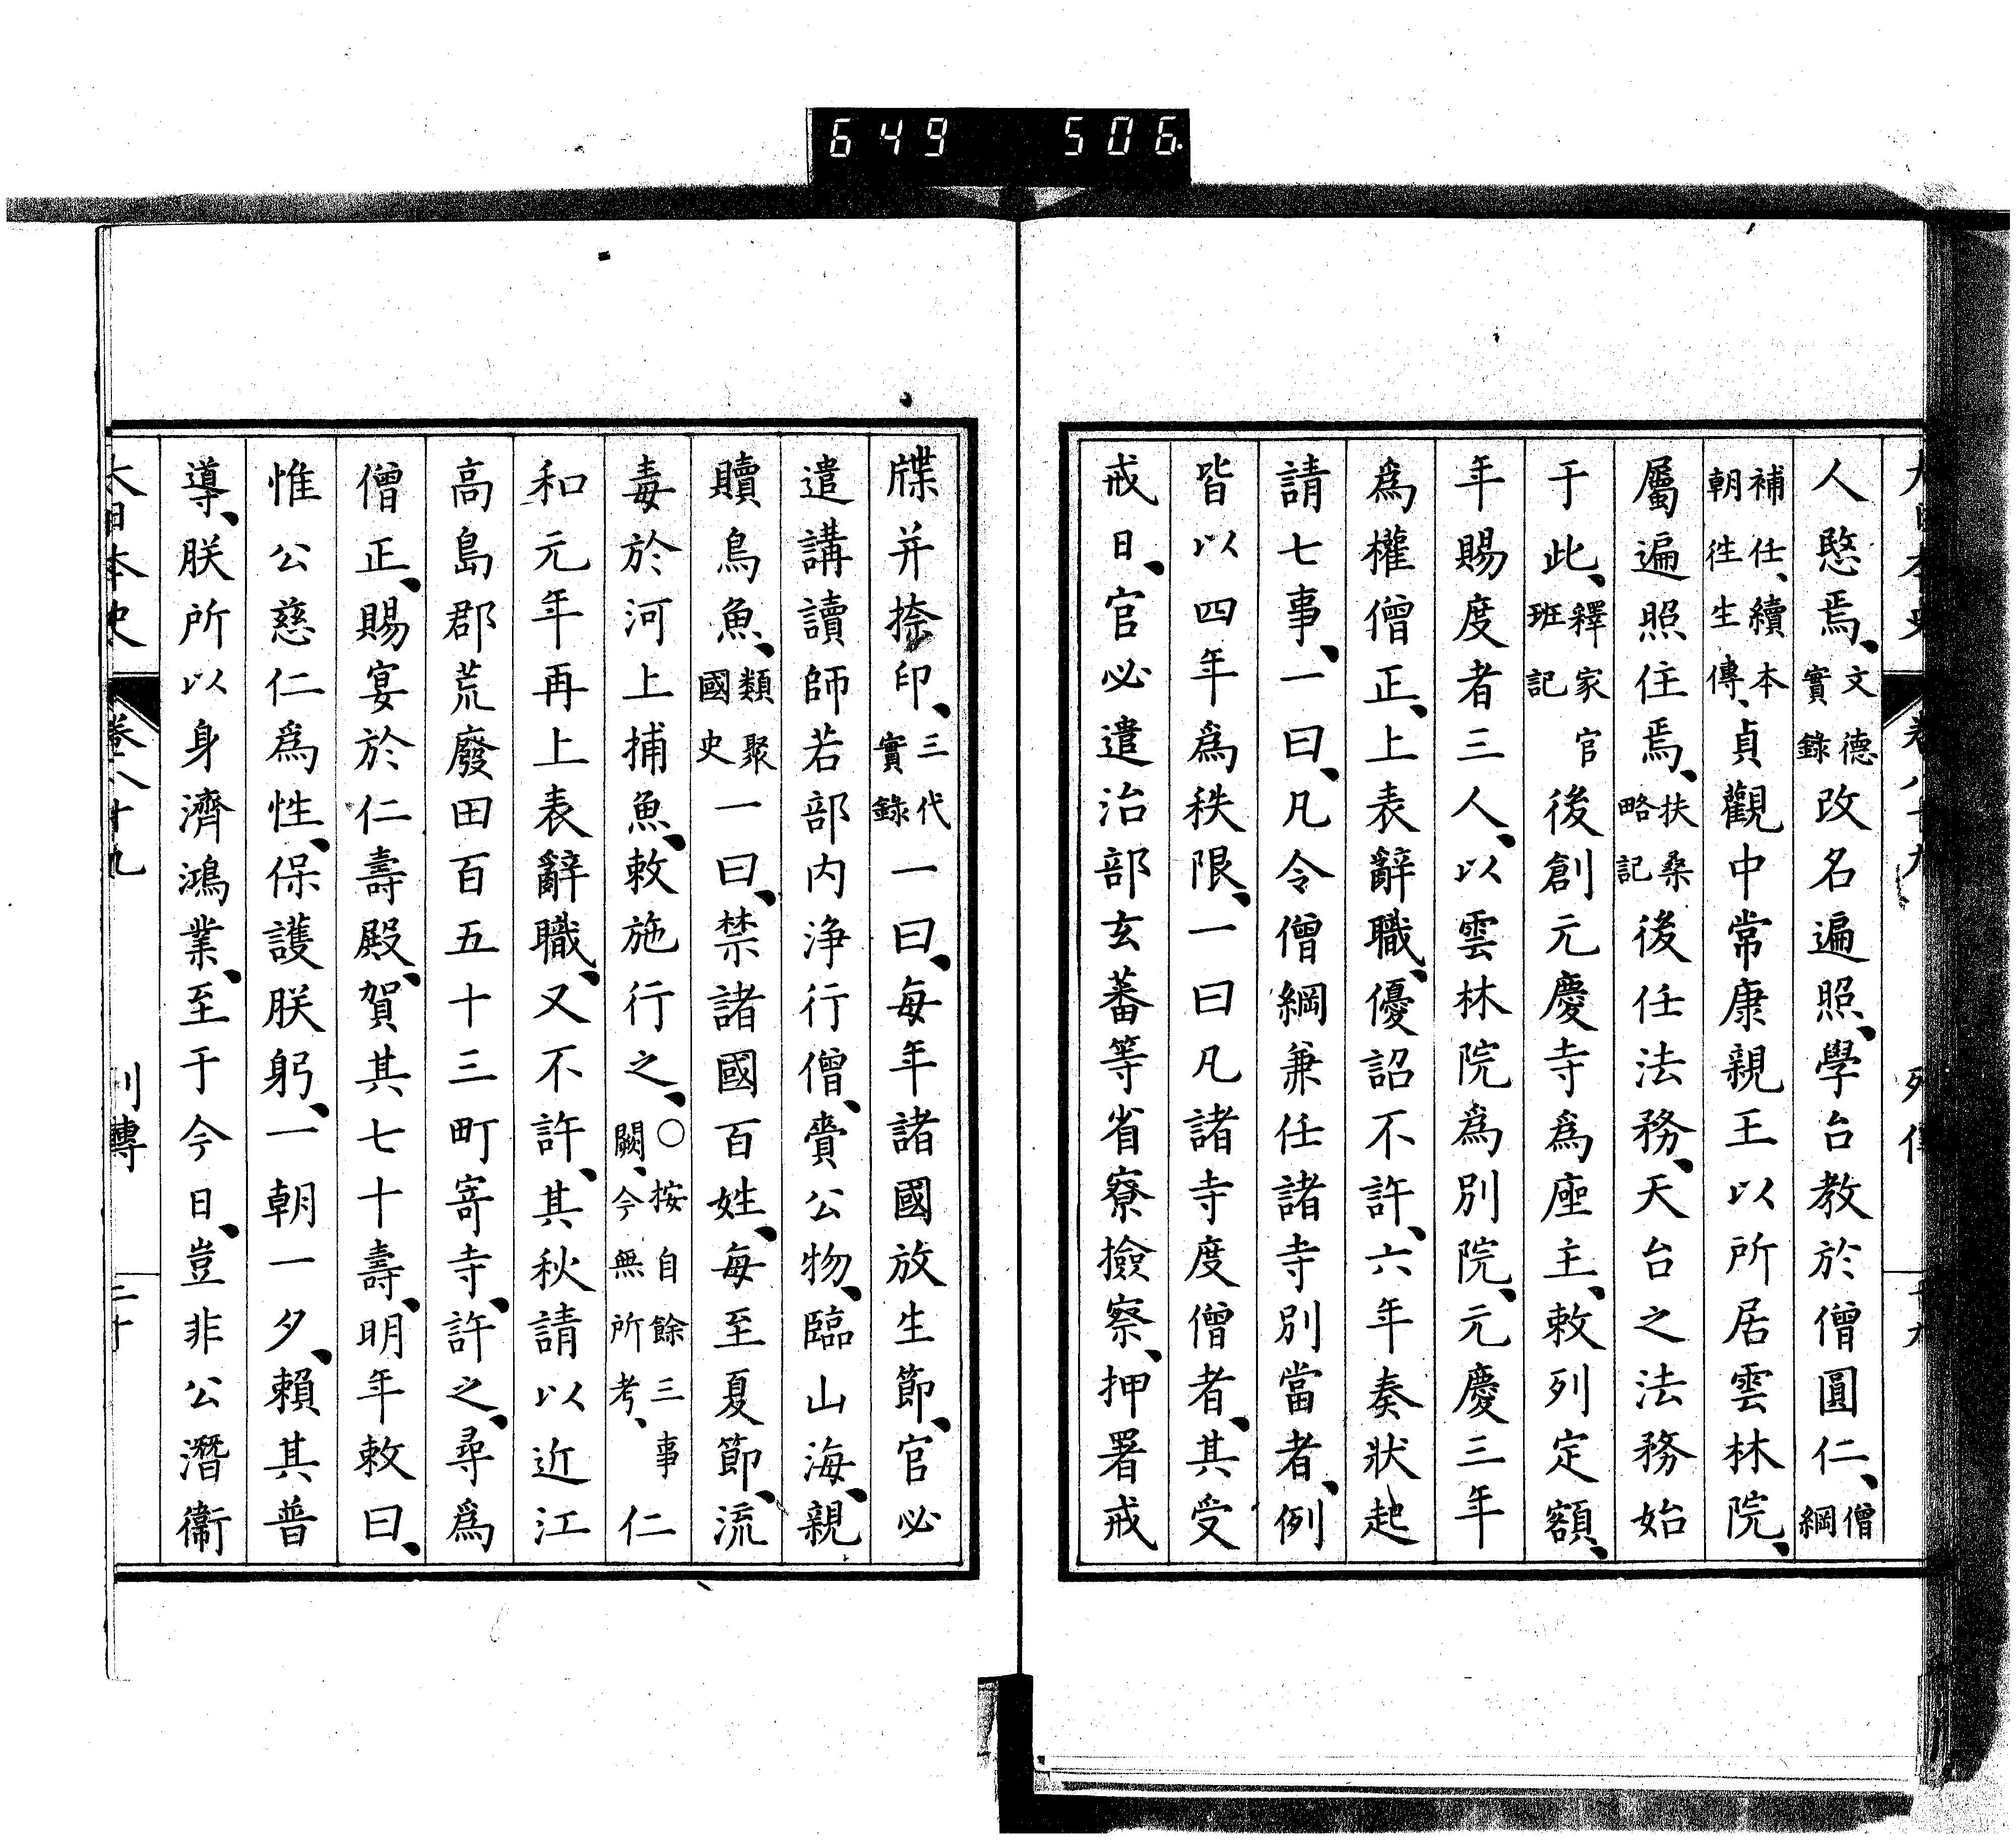 649 506
人愍焉、文德實錄改名遍照、學台教於僧圓仁、僧綱
補任、續本朝徃生傳、貞觀中常康親王以所居雲林院、
屬遍照住焉、扶桑略記後任法務、天台之法務始
于此、釋家官班記後創元慶寺爲座主、敕列定額、
年賜度者三人、以雲林院爲別院、元慶三年
爲權僧正、上表辭職、優詔不許、六年奏狀起
請七事、一曰、凡令僧綱兼任諸寺別當者、例
皆以四年爲秩限、一曰凡諸寺度僧者、其受
戒日、官必遣治部玄蕃等省寮撿察、押署戒
牒并捺印、三代實錄一曰、每年諸國放生節、官必
遣講讀師若部内浄行僧、賫公物、臨山海、親
贖鳥魚、類聚國史一曰、禁諸國百姓、每至夏節、流
毒於河上捕魚、敕施行之、○按自餘三事闕、今無所考、仁
和元年再上表辭職、又不許、其秋請以近江
高島郡荒廢田百五十三町寄寺、許之、尋爲
僧正、賜宴於仁壽殿、賀其七十壽、明年敕曰、
惟公慈仁爲性、保護朕躬、一朝一夕、賴其普
導、朕所以身濟鴻業、至于今日、豈非公潛衞
大日本史 卷八十九 列傳 二十